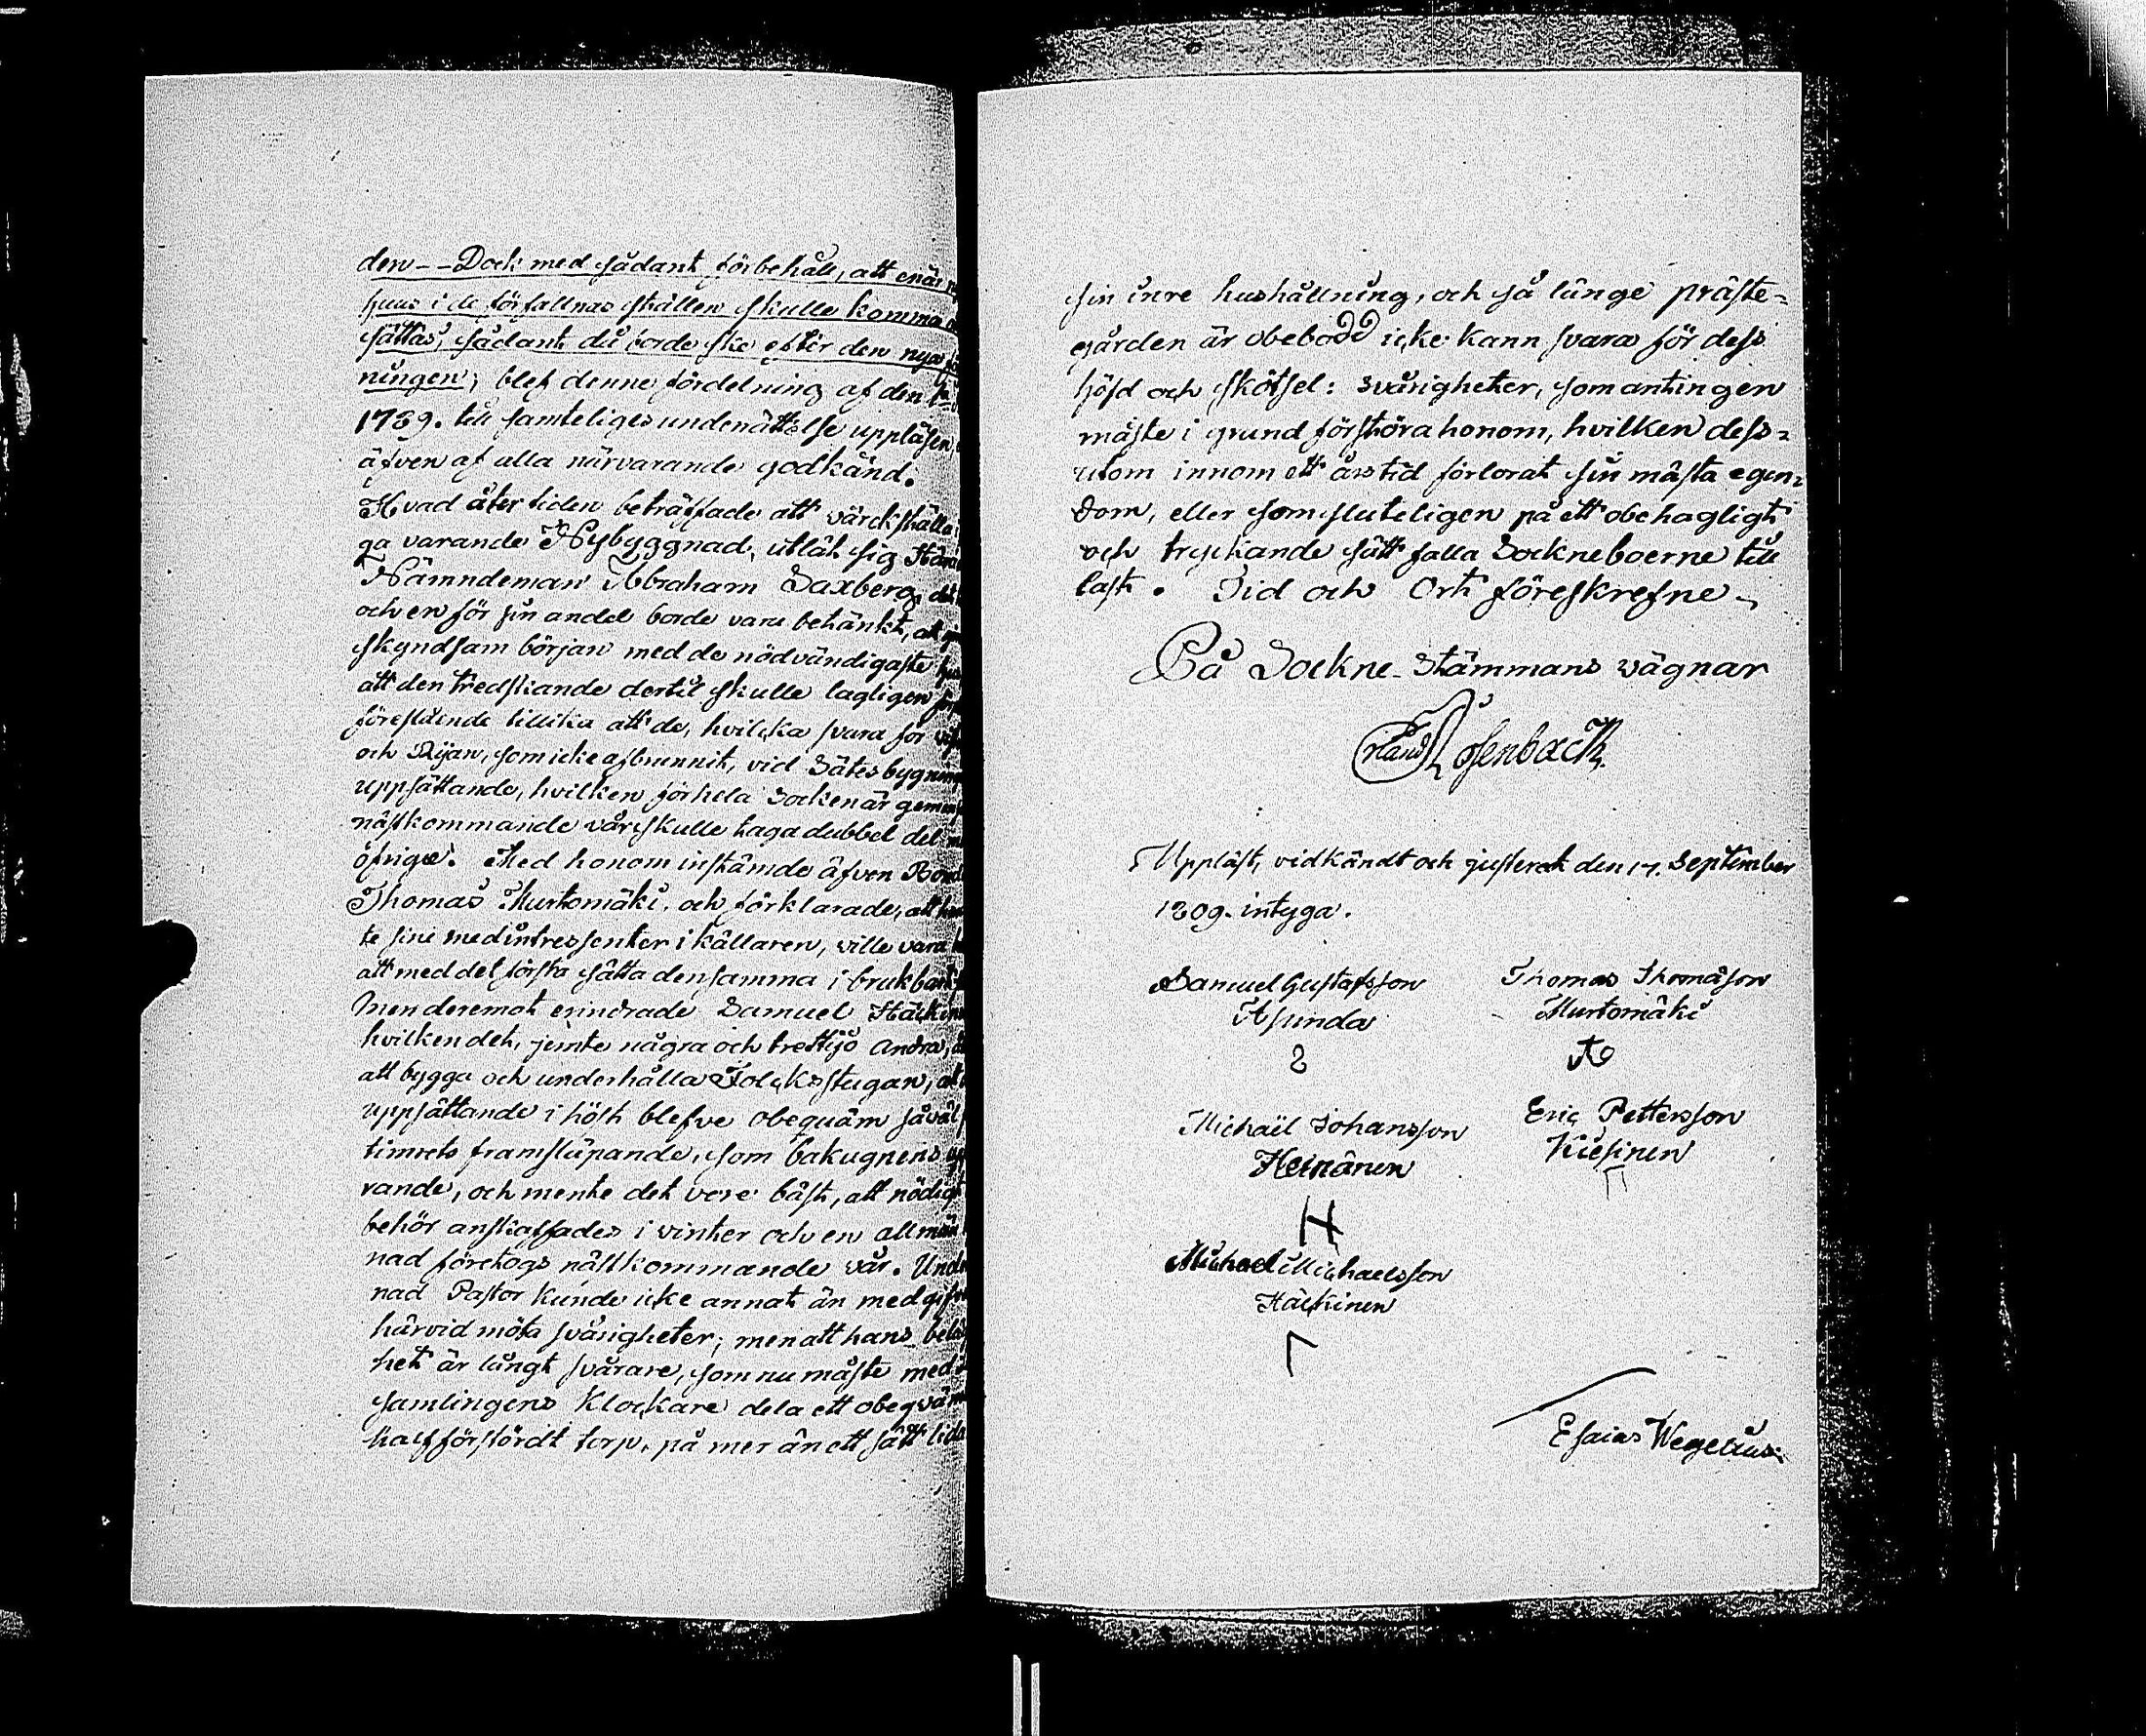 den -- Dock med sådant förbehåll, att enär
huus i de förfallnas ställen skulle komma
sättas, sådant då borde ske efter den nya
ningen; blef denne fördelning af den
1789. till samteliges underrättelse uppläsen,
äfven af alla närvarande godkänd.
Hvad åter tiden beträffade att värckställa
ga varande Nybyggnad, utlät sig
Nämndeman Abraham Saxberg,
och en för sin andel borde vara betänkt, att
skyndsam början med de nödvändigaste
att den tredskande dertil skulle lagligen
föreslående tillika att de, hvilcka svara för
och Rijan, som icke afbrunnit, vid Sätesbygn
uppsättande, hvilken för hela Socken är gemen
nästkommande vår skulle taga dubbel del
öfrige. Med honom instämde äfven
Thomas Murtomäki, och förklarade, att
te sine medintressenter i källaren, ville vara
att med det första sätta densamma i brukbart
Men deremot erindrade Samuel
hvilken det, jemte några och trettijo andra,
att bygga och underhålla Folcksstugan,
uppsättande i höst blefve obequäm såväl
timrets framsläpande, som bakugnens
rande, och mente det vore bäst, att nödigt
behör anskaffades i vinter och en allmän
nad företogs nästkommande vår.
nad Pastor kunde icke annat än medgifva
härvid möta svårigheter; men att hans
het är långt svårare, som nu måste med
samlingens Klockare dela ett obeqväm
half förstördt torp, på mer än ett sätt lida
sin inre hushållning, och så länge präste-
gården är obebodd icke kann svara för dess
höfd och skötsel: svårigheter, som antingen
måste i grund förstöra honom, hvilken dess-
utom innom ett års tid förlorat sin mästa egen-
dom, eller som sluteligen på ett obehagligt
och tryckande sätt falla Sockneboerne till
last. Tid och Ort föreskrefne.
På Sockne-Stämmans wägnar
Erland Rosenback
Uppläst, vidkändt och justerat den 17. September
1809. intyga.
Samuel Gustafsson Thomas Thomasson
Asunda Murtomäki
Michaël Johansson Eric Pettersson
Heinänen Kiesinen
H
Michael Michaelsson
Häckinen
Esaias Wegelius